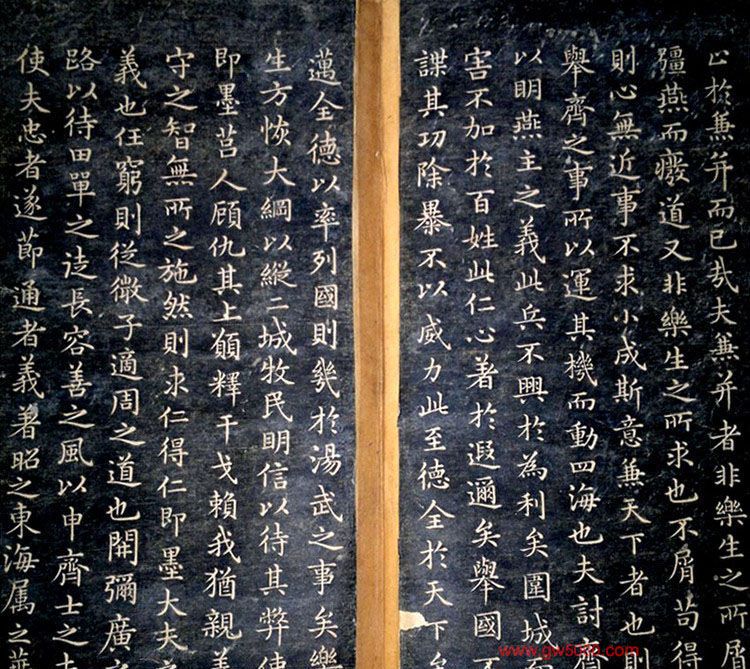 止於兼并而已哉夫兼并者非樂生之所屑
彊燕而廢道又非樂生之所求也不屑苟得
則心無近事不求小成斯意兼天下者也則
舉齊之事所以運其機而動四海也夫討齊
以明燕主之義此兵不興於為利矣圍城而
害不加於百姓此仁心著於遐邇矣舉國不
謀其功除暴不以威力此至德全於天下矣
邁全德以率列國則幾於湯武之事矣樂
生方恢大綱以縱二城牧民明信以待其弊使
即墨莒人顧仇其上願釋干戈賴我猶親善
守之智無所之施然則求仁得仁即墨大夫之
義也任窮則從微子適周之道也開彌廣之
路以待田單之徒長容善之風以申齊士之志
使夫忠者遂節通者義著昭之東海属之華